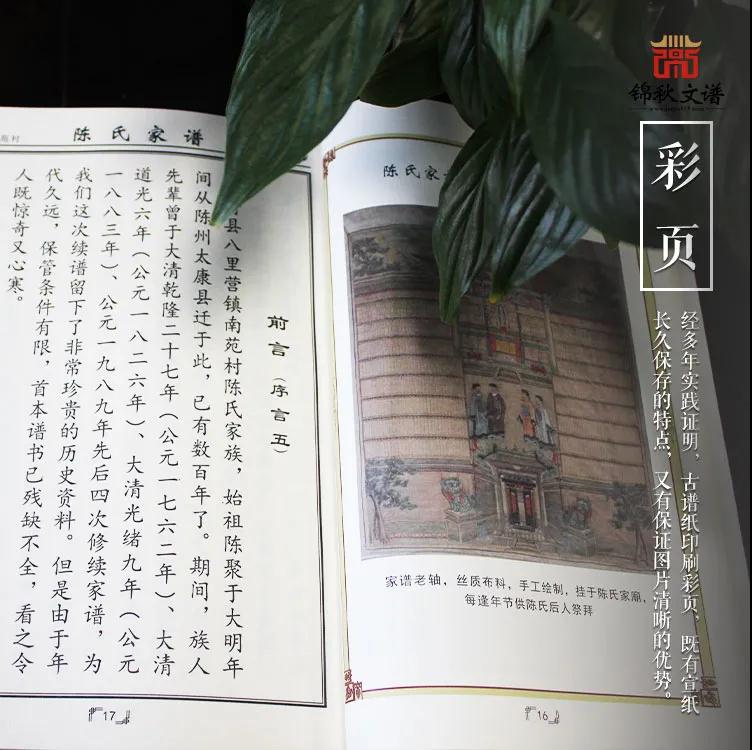 锦秋文谱
彩页
经多年实践证明，古谱纸印刷彩页，既有宣纸
长久保存的特点，又有保证图片清晰的优势。
陈氏家
家谱老轴，丝质布料，手工绘制，挂于陈氏家庙，
每逢年节供陈氏后人祭拜
16
陈氏家谱
前言（序言五）
县八里营镇南苑村陈氏家族，始祖陈聚于大明年
间从陈州太康县迁于此，已有数百年了。期间，族人
先辈曾于大清乾隆二十七年（公元一七六二年）、大清
道光六年（公元一八二六年）、大清光绪九年（公元
一八八三年）、公元一九八九年先后四次修续家谱，为
我们这次续谱留下了非常珍贵的历史资料。但是由于年
代久远，保管条件有限，首本谱书已残缺不全，看之令
人既惊奇又心寒。
17